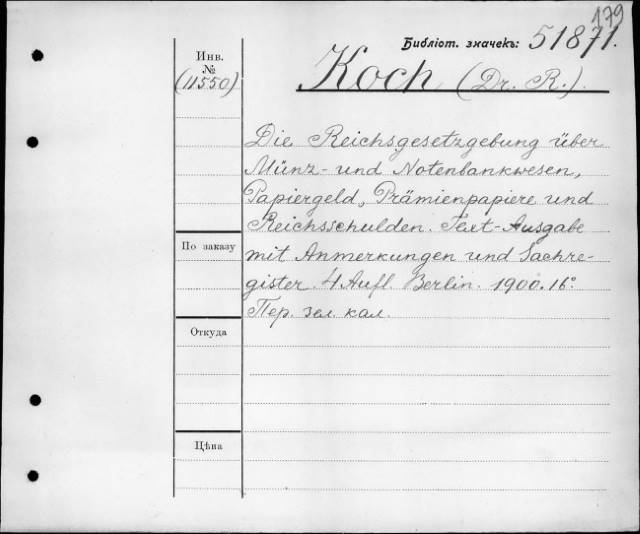 179
Библіот. значекъ: 51871.
Инв.
№
(11550)
Koch (Dr. R.)
Die Reichsgesetzgebung über
Münz- und Notenbankwesen,
Papiergeld, Prämienpapiere und
Reichsschulden. Text-Ausgabe
mit Anmerkungen und Sachre-
gister. 4 Aufl. Berlin. 1900. 16°
Пер. зел. кал.
По заказу
Откуда
Цѣна